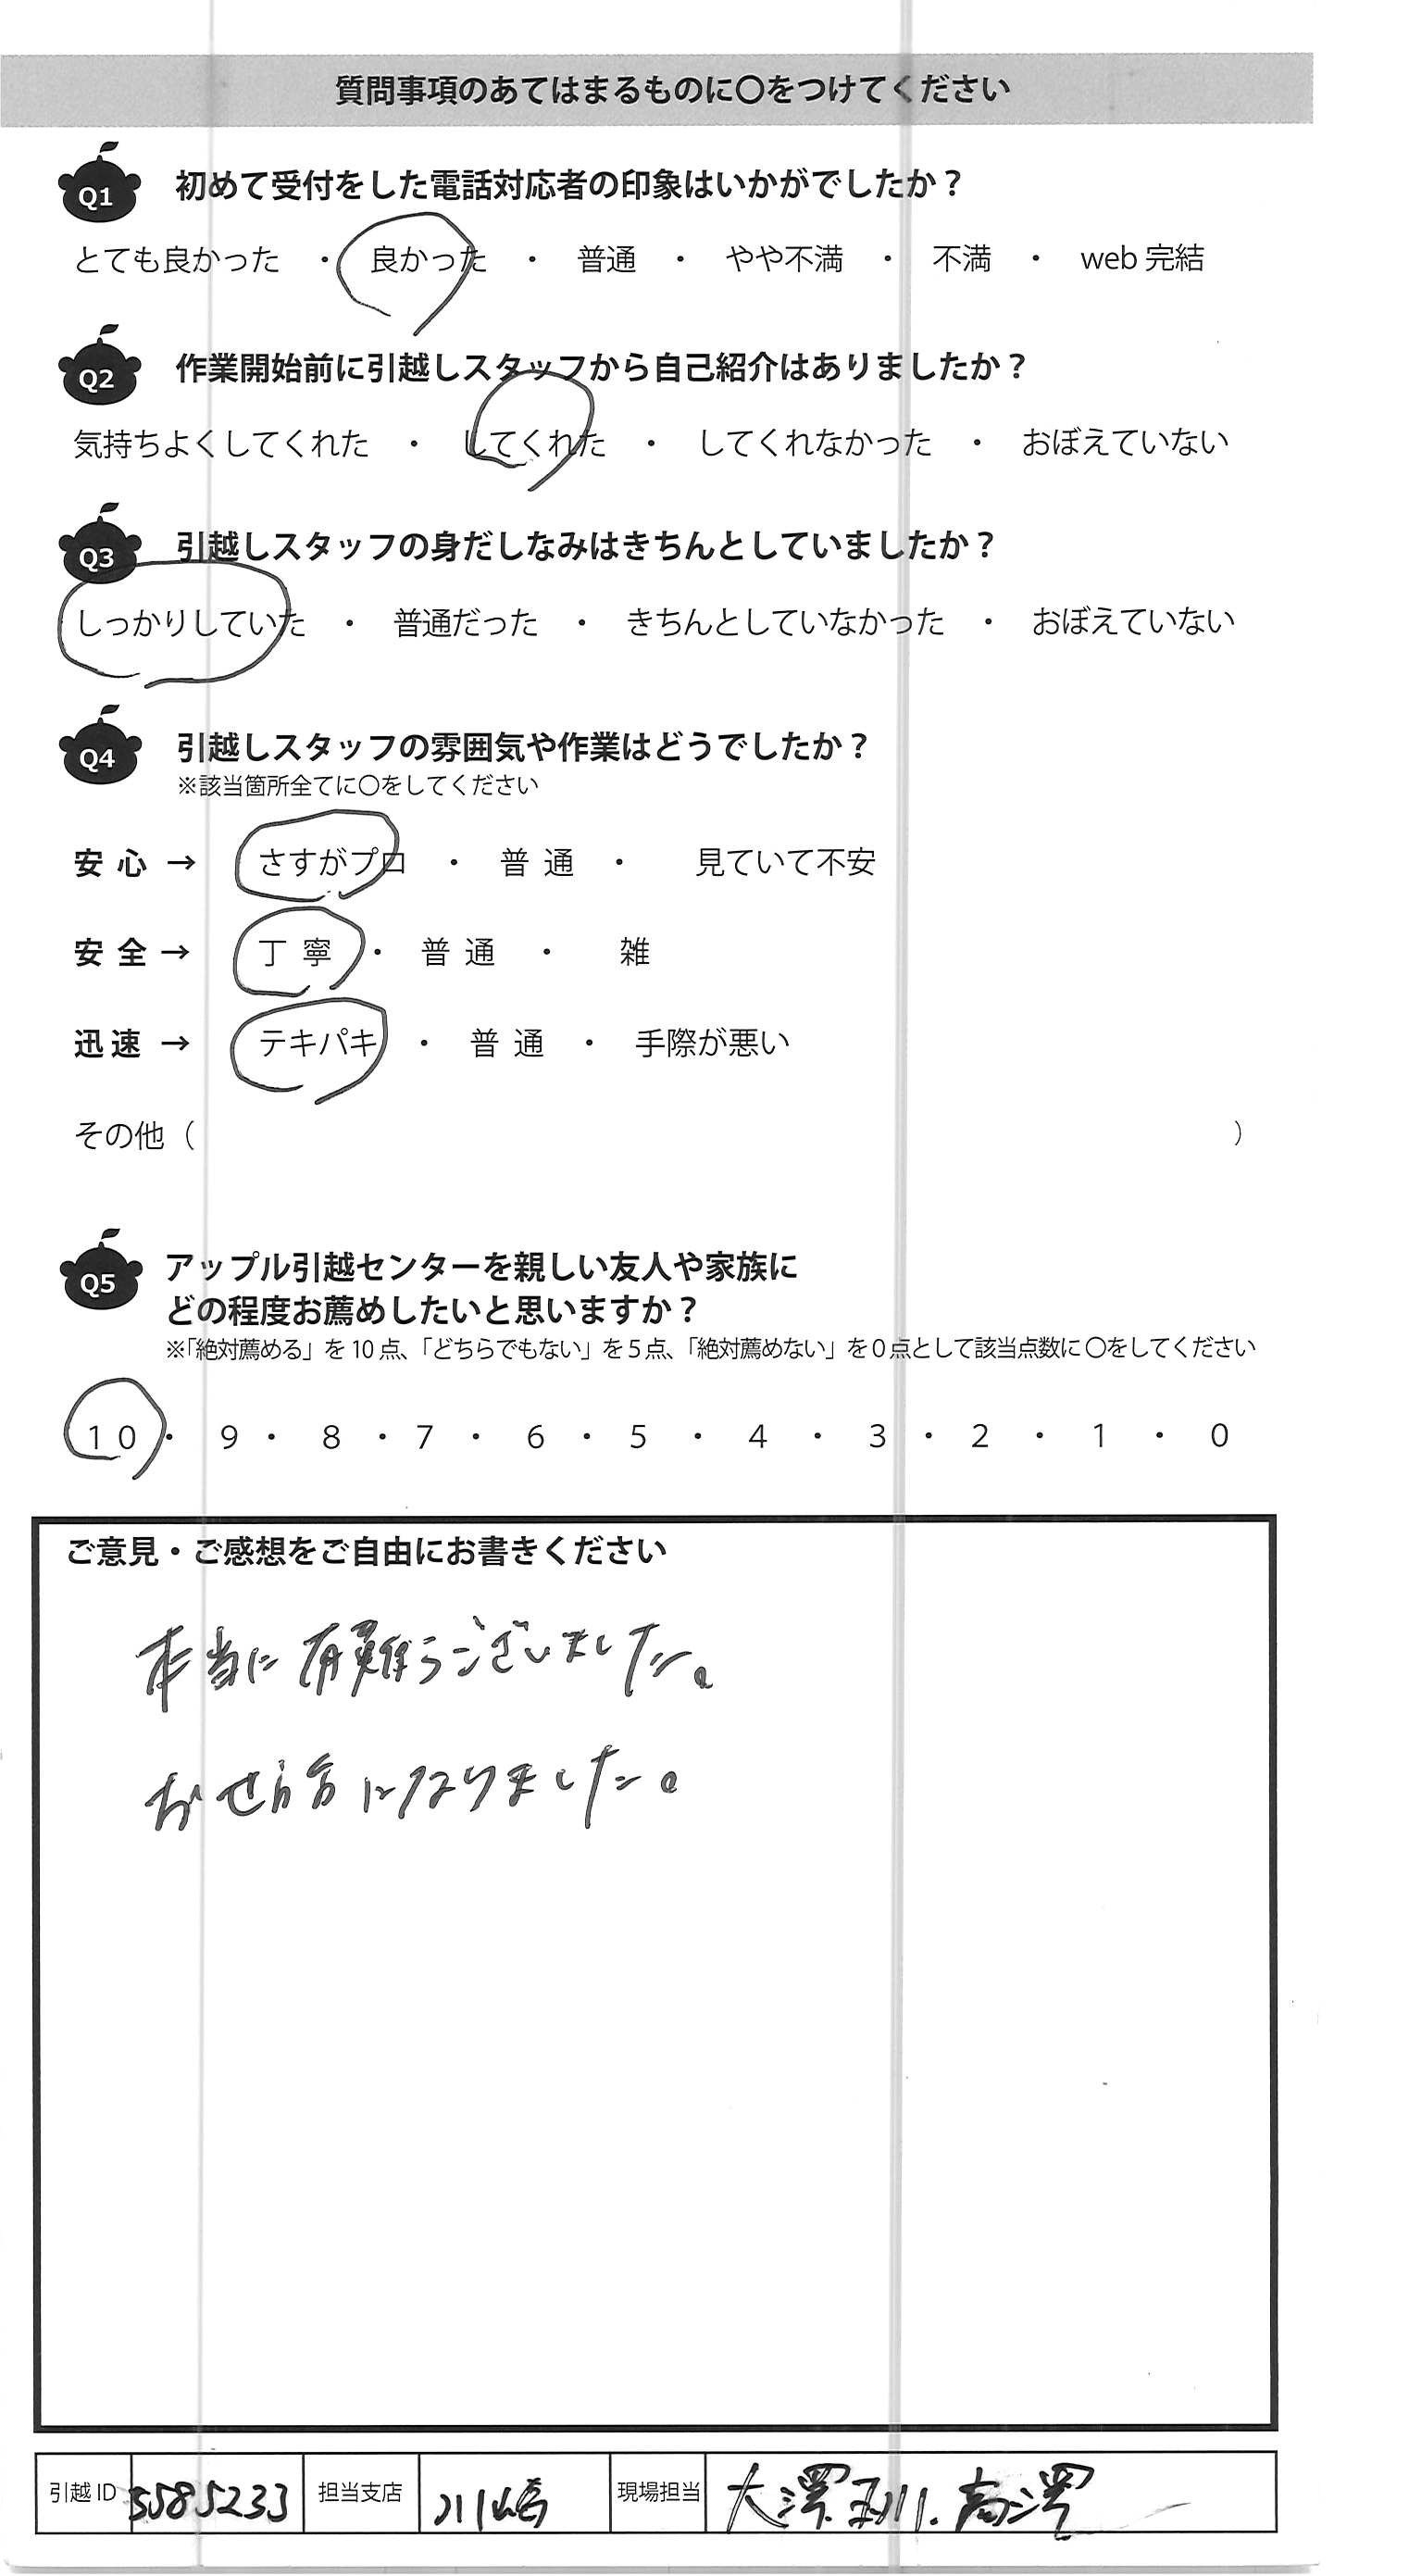 質問事項のあてはまるものに〇をつけてください
Q1 初めて受付をした電話対応者の印象はいかがでしたか？
とても良かった ・ 良かった ・ 普通 ・ やや不満 ・ 不満 ・ web 完結
Q2 作業開始前に引越しスタッフから自己紹介はありましたか？
気持ちよくしてくれた ・ してくれた ・ してくれなかった ・ おぼえていない
Q3 引越しスタッフの身だしなみはきちんとしていましたか？
しっかりしていた ・ 普通だった ・ きちんとしていなかった ・ おぼえていない
Q4 引越しスタッフの雰囲気や作業はどうでしたか？
※該当箇所全てに〇をしてください
安心 → さすがプロ ・ 普通 ・ 見ていて不安
安全 → 丁寧 ・ 普通 ・ 雑
迅速 → テキパキ ・ 普通 ・ 手際が悪い
その他（ ）
Q5 アップル引越センターを親しい友人や家族に
どの程度お薦めしたいと思いますか？
※「絶対薦める」を 10 点、「どちらでもない」を 5 点、「絶対薦めない」を 0 点として該当点数に 〇をしてください
10 ・ 9 ・ 8 ・ 7 ・ 6 ・ 5 ・ 4 ・ 3 ・ 2 ・ 1 ・ 0
ご意見・ご感想をご自由にお書きください
本当に有難うございました。
おせ話になりました。
引越 ID 3585233 担当支店 川崎 現場担当 大澤 高澤